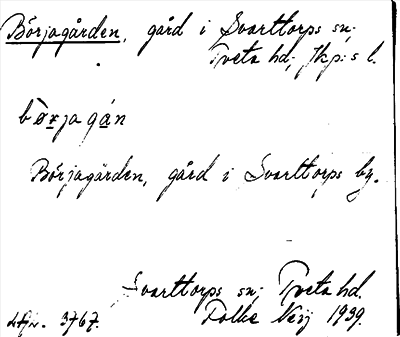 Börjagården, gård i Svarttorps sn;
Tveta hd; Jkp:s l.
bö̀rjagán
Börjagården, gård i Svarttorps by.
Svarttorps sn; Tveta hd.
3767. Folke Neij 1939.